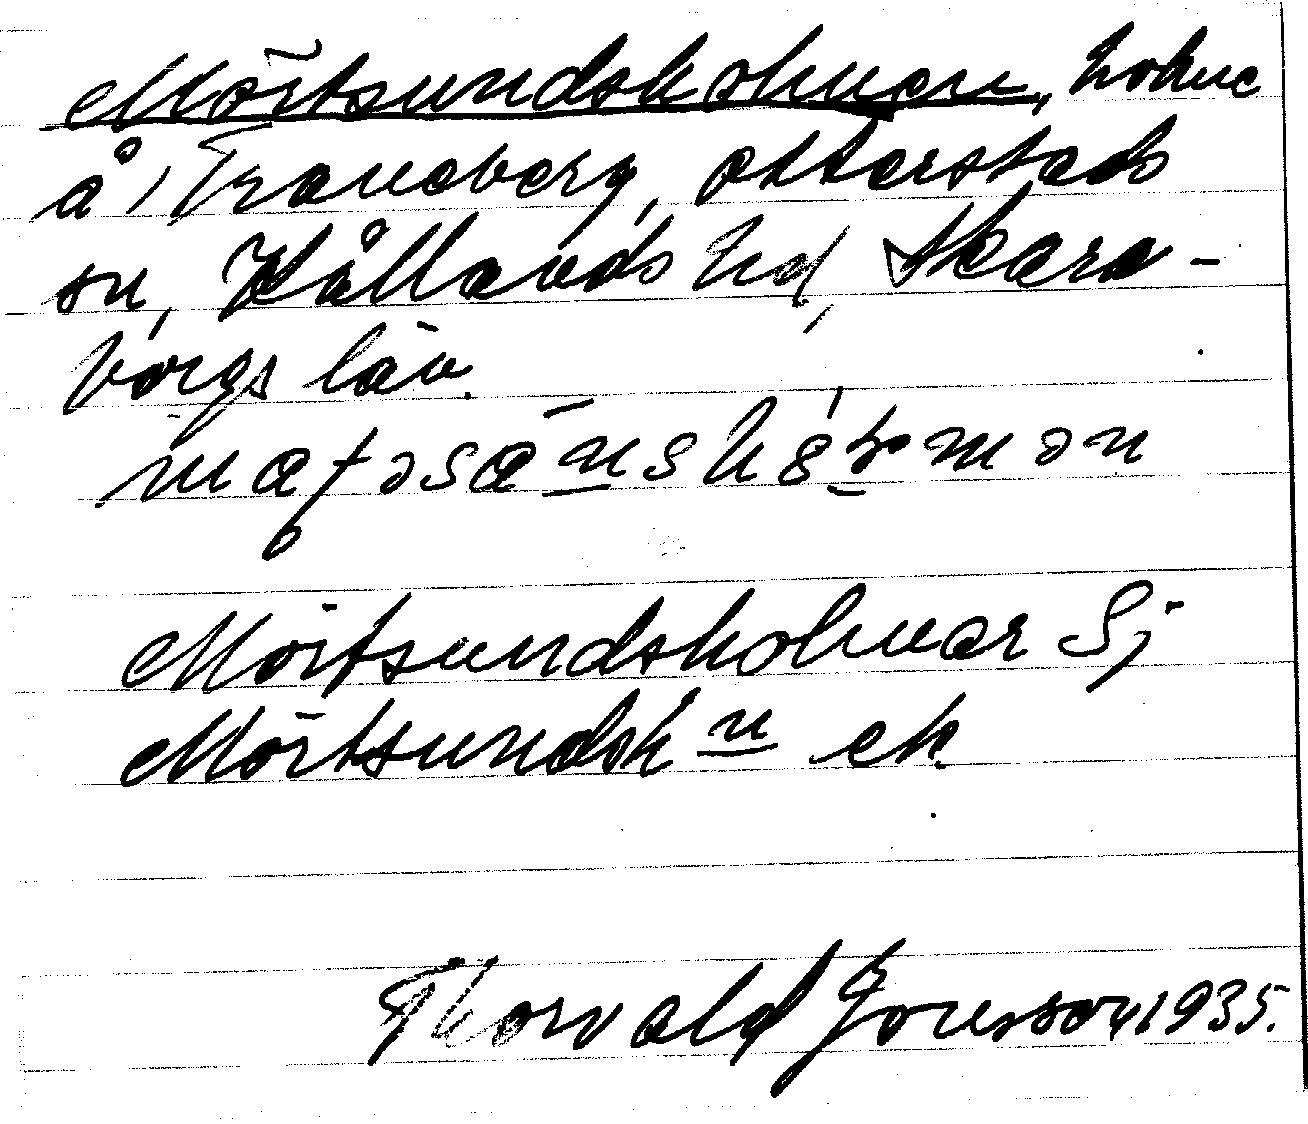 Mörtsundskolmen, holme
å Traneberg, Otterstads
sn, Kållands hd, Skara-
borgs län.
Mörtsundsholmar Sj
Mörtsundsh n ek
Thorvald Jonsson 1935.